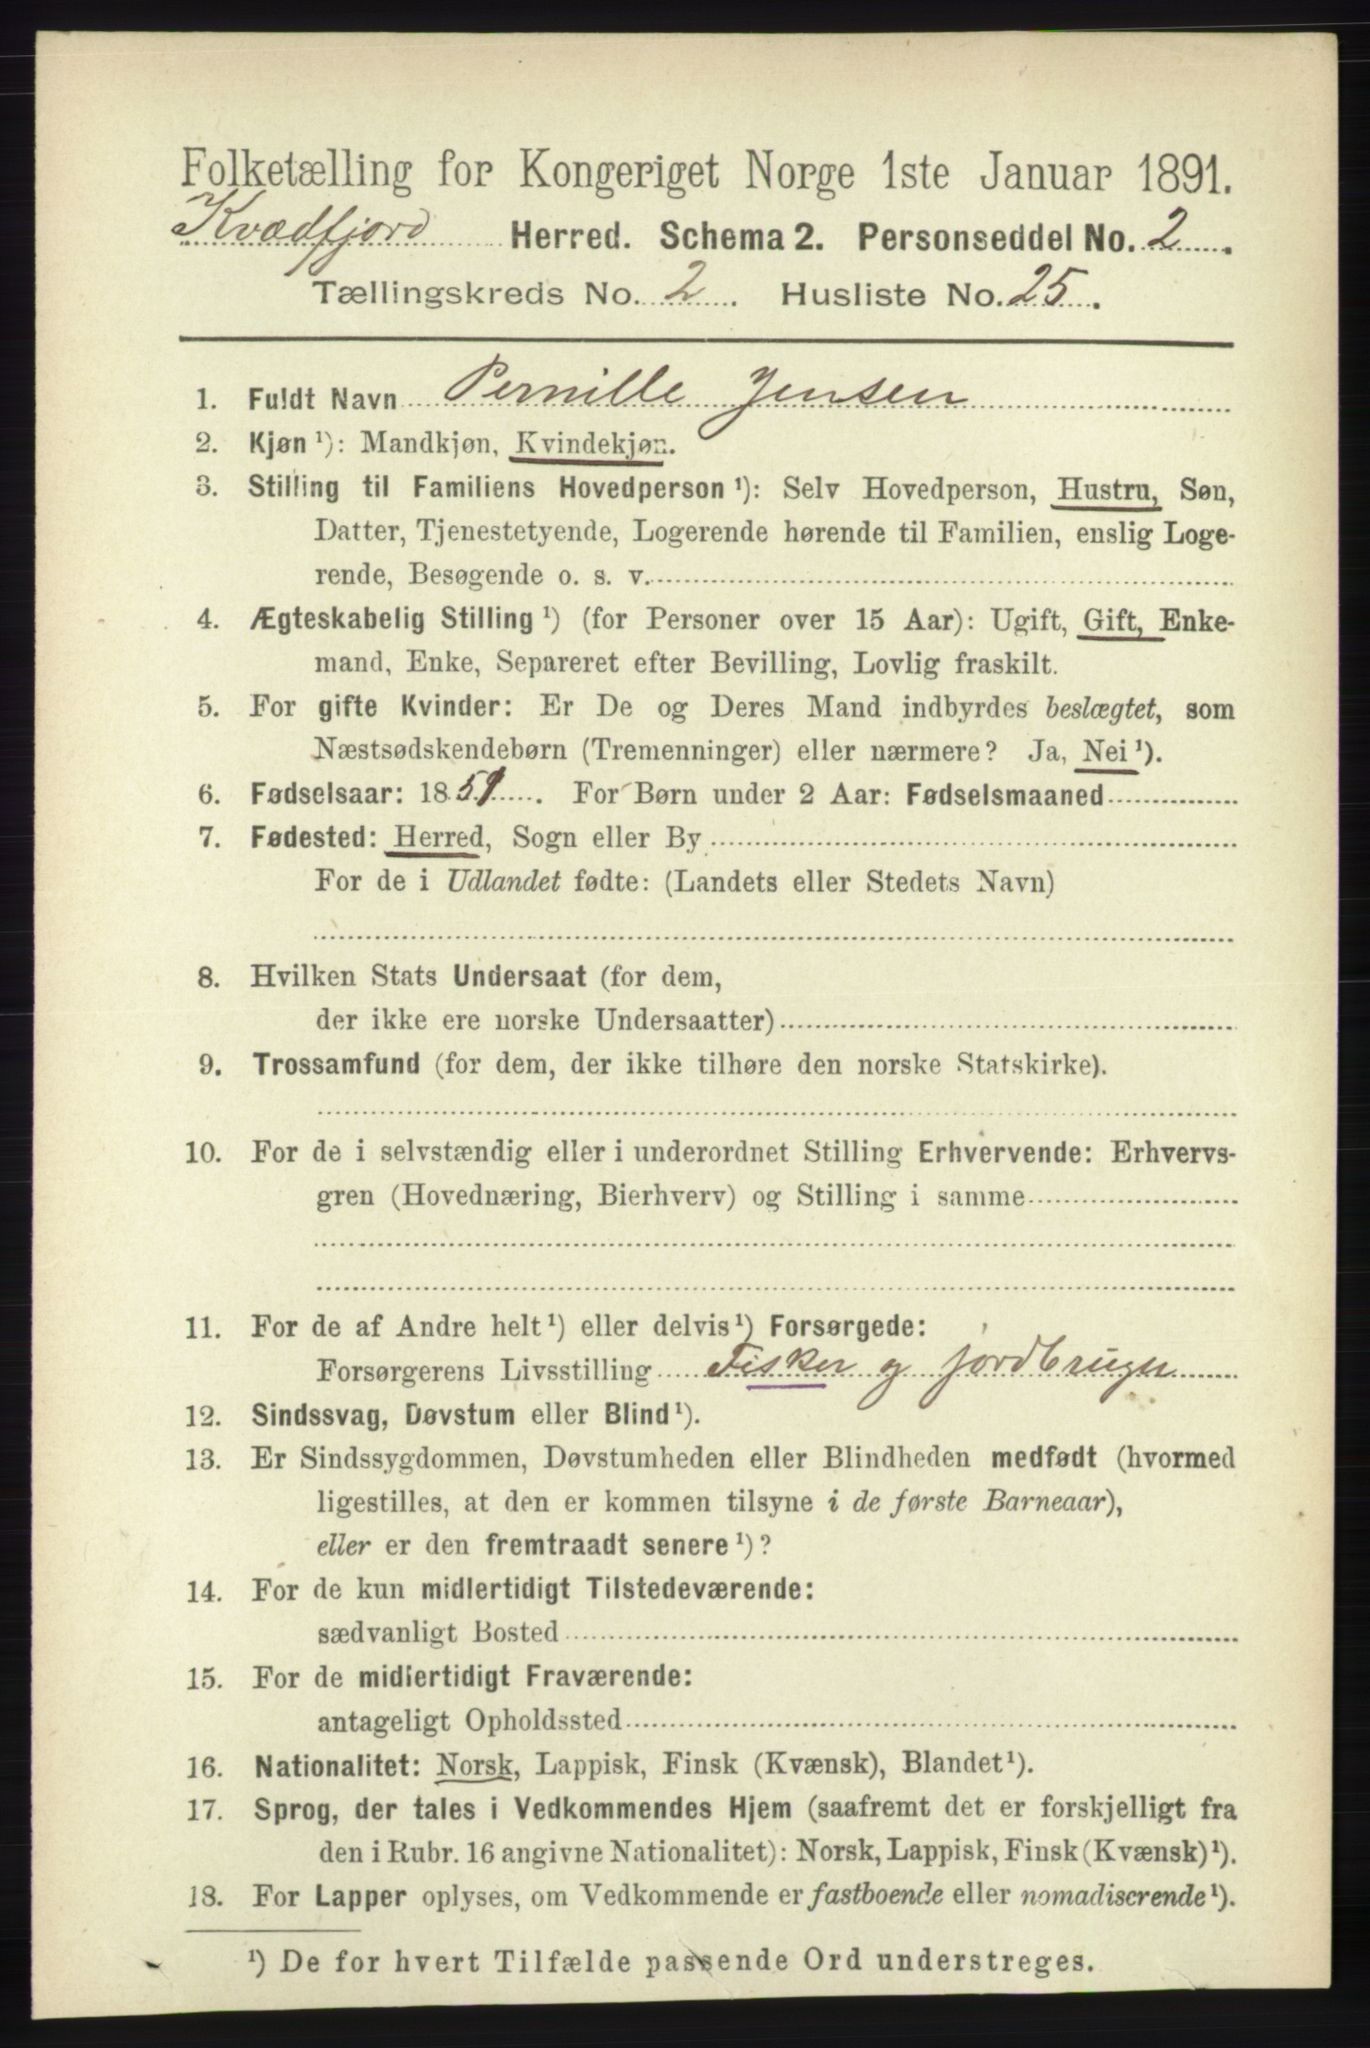 Folketælling for Kongeriget Norge 1ste Januar 1891.
Kvædfjord Herred. Schema 2. Personseddel No. 2.
Tællingskreds No. 2. Husliste No. 25.
1. Fuldt Navn Pernille Jensen
2. Kjøn ¹): Mandkjøn, Kvindekjøn.
3. Stilling til Familiens Hovedperson ¹): Selv Hovedperson, Hustru, Søn,
Datter, Tjenestetyende, Logerende hørende til Familien, enslig Loge-
rende, Besøgende o. s. v.
4. Ægteskabelig Stilling ¹) (for Personer over 15 Aar): Ugift, Gift, Enke-
mand, Enke, Separeret efter Bevilling, Lovlig fraskilt.
5. For gifte Kvinder: Er De og Deres Mand indbyrdes beslægtet, som
Næstsødskendebørn (Tremenninger) eller nærmere? Ja, Nei ¹).
6. Fødselsaar: 1851. For Børn under 2 Aar: Fødselsmaaned
7. Fødested: Herred, Sogn eller By
For de i Udlandet fødte: (Landets eller Stedets Navn)
8. Hvilken Stats Undersaat (for dem,
der ikke ere norske Undersaatter)
9. Trossamfund (for dem, der ikke tilhøre den norske Statskirke).
10. For de i selvstændig eller i underordnet Stilling Erhvervende: Erhvervs-
gren (Hovednæring, Bierhverv) og Stilling i samme
11. For de af Andre helt ¹) eller delvis ¹) Forsørgede:
Forsørgerens Livsstilling Fisker og jordbruger
12. Sindssvag, Døvstum eller Blind ¹).
13. Er Sindssygdommen, Døvstumheden eller Blindheden medfødt (hvormed
ligestilles, at den er kommen tilsyne i de første Barneaar),
eller er den fremtraadt senere ¹)?
14. For de kun midlertidigt Tilstedeværende:
sædvanligt Bosted
15. For de midlertidigt Fraværende:
antageligt Opholdssted
16. Nationalitet: Norsk, Lappisk, Finsk (Kvænsk), Blandet ¹).
17. Sprog, der tales i Vedkommendes Hjem (saafremt det er forskjelligt fra
den i Rubr. 16 angivne Nationalitet): Norsk, Lappisk, Finsk (Kvænsk) ¹).
18. For Lapper oplyses, om Vedkommende er fastboende eller nomadiserende ¹).
¹) De for hvert Tilfælde passende Ord understreges.